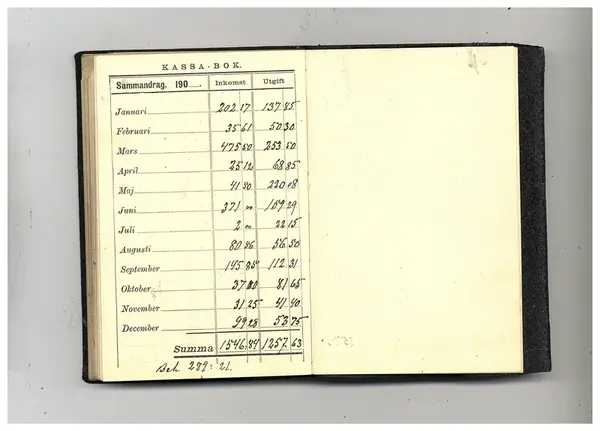 KASSA-BOK.
Sammandrag. 190 Inkomst Utgift
Januari 202 17 137 85
Februari 35 61 50 30
Mars 475 50 253 50
April 25 12 68 85
Maj 41 50 220 08
Juni 371 00 159 29
Juli 2 00 22 15
Augusti 80 56 56 50
September 145 85 112 31
Oktober 37 00 81 65
November 31 25 41 40
December 99 28 53 75
Summa 1546 84 1257 63
Beh. 289: 21.